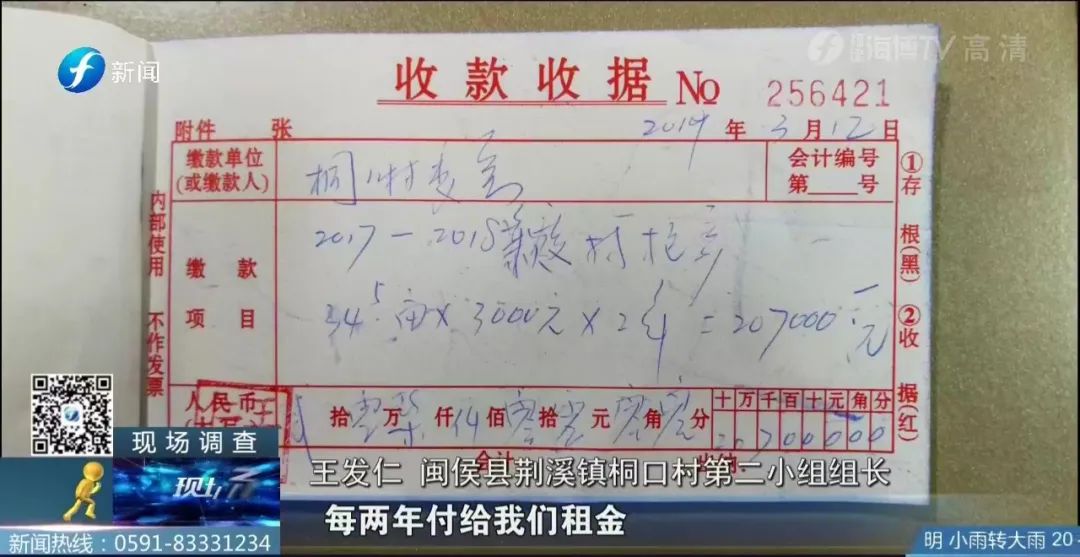 新闻
海博TV 高清
收款收据 No 256421
附件 张 2019年3月12日
缴款单位
(或缴款人)
会计编号
第 号
内部使用 不作发票
缴款
项目
2017-2018
34.5亩×3000元×2年=207000元
人民币
拾 万 仟 佰 拾 元 角 分
十万千百十元角分
20700000
①存根(黑) ②收据(红)
现场调查
现场
王发仁 闽侯县荆溪镇桐口村第二小组组长
每两年付给我们租金
新闻热线：0591-83331234
明 小雨转大雨 20